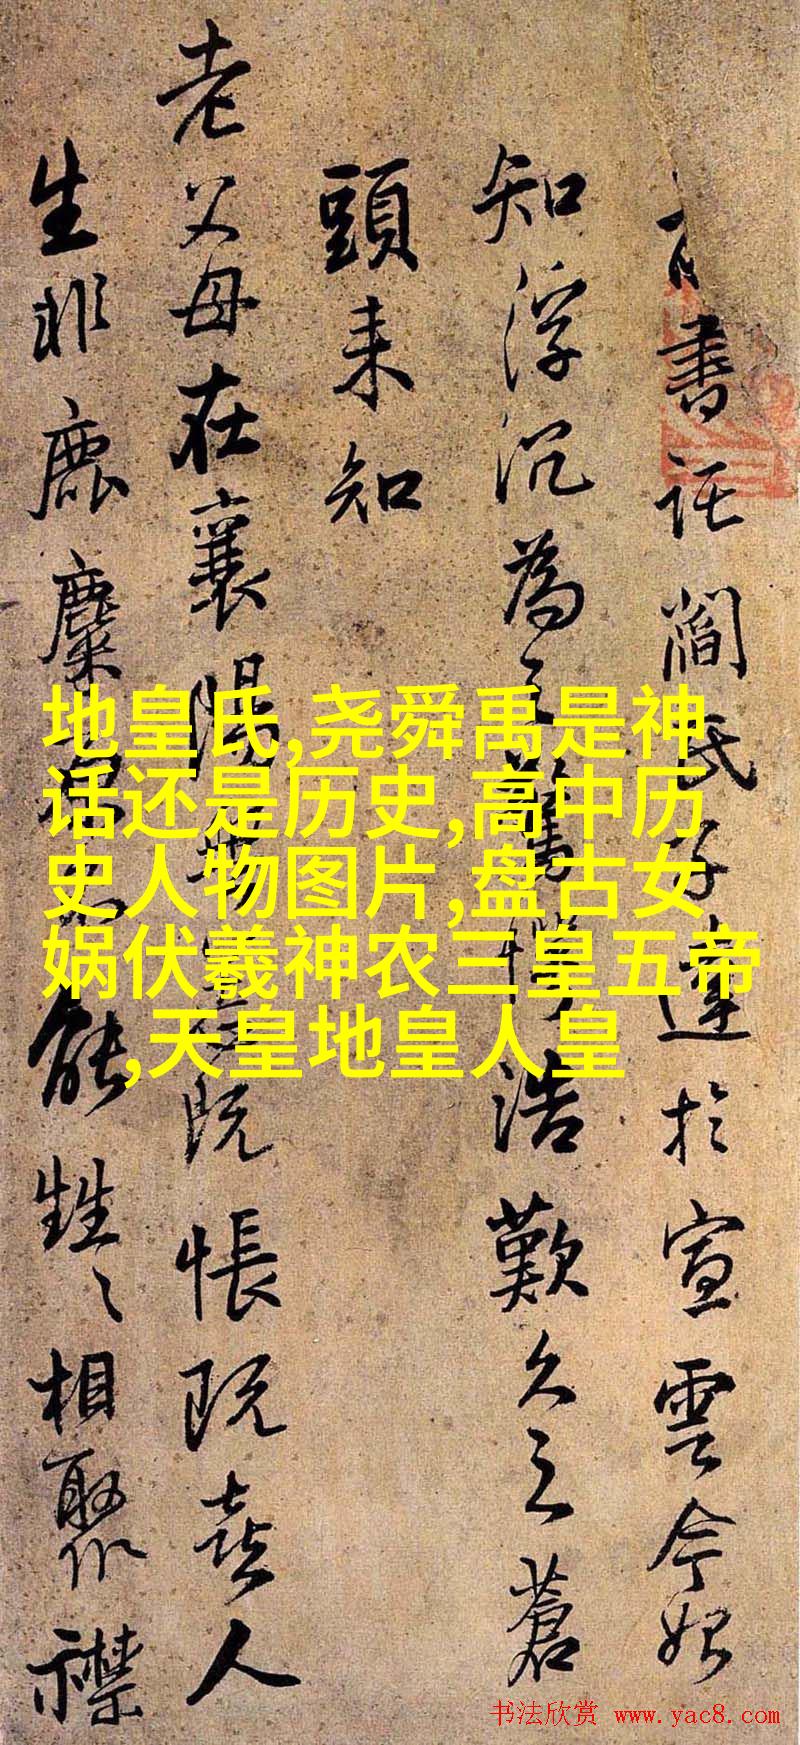 書託閻氏子達於宣雲今始
知浮沉為之驚浩歎久之蒼
頭未知
老父母在襄陽既悵既喜人
生非鹿麋能甡々相聚襟
地皇氏,尧舜禹是神
话还是历史,高中历
史人物图片,盘古女
娲伏羲神农三皇五帝
,天皇地皇人皇
书法欣赏 www.yac8.com